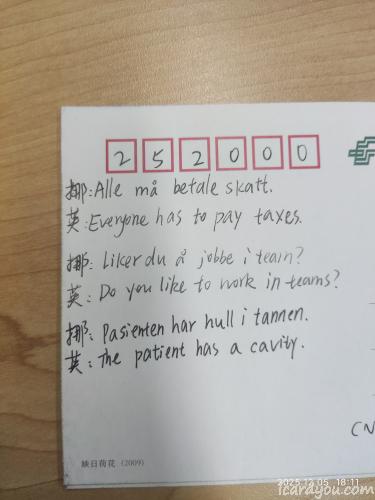 252000
挪:Alle må betale skatt.
英:Everyone has to pay taxes.
挪:Liker du å jobbe i team?
英:Do you like to work in teams?
挪:Pasienten har hull i tannen.
英:The patient has a cavity.
CN
映日荷花 (2009)
2025.12.05 18:11
icardyou.com